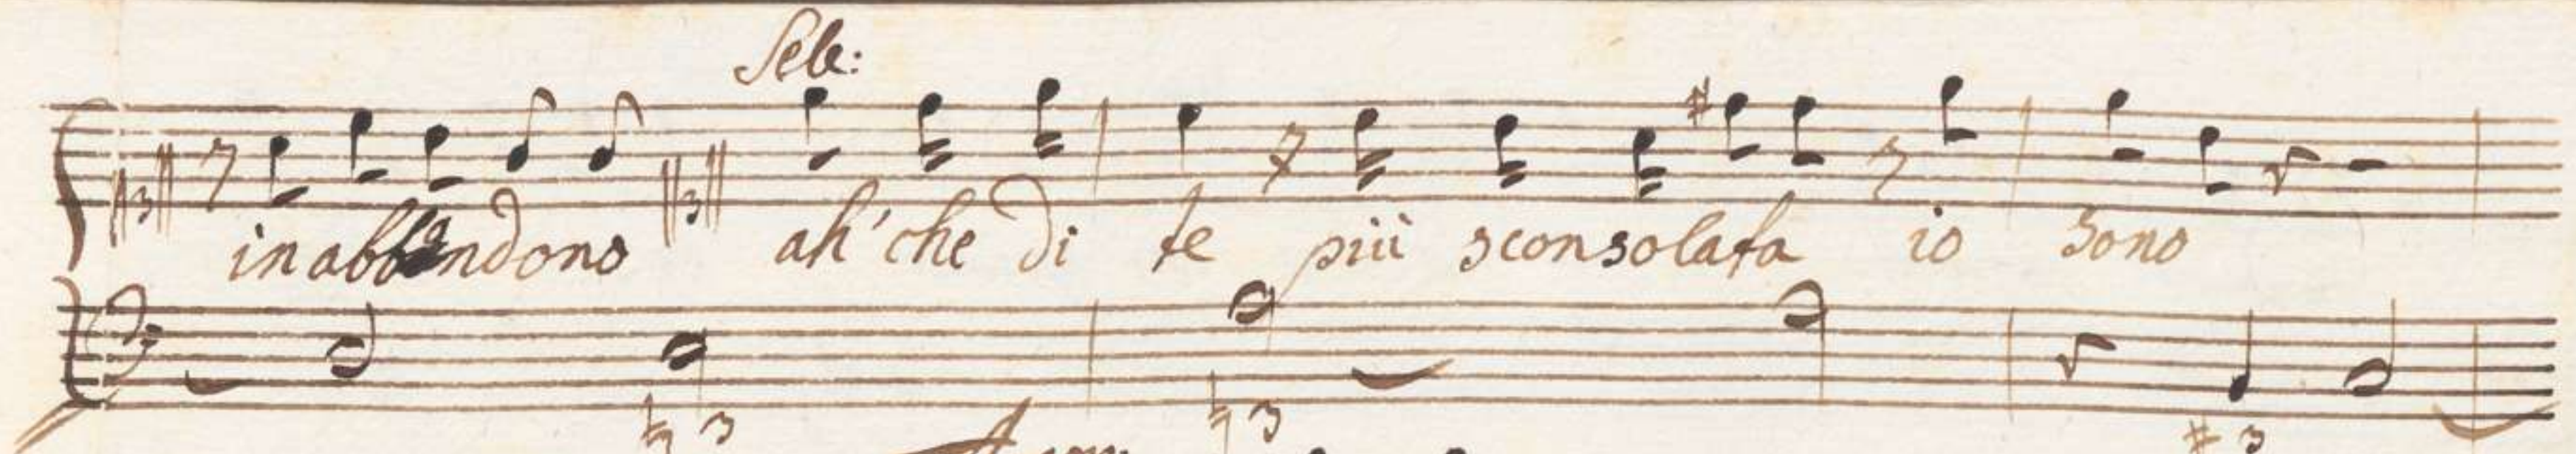 Sele:
in abbandono ah' che di te più sconsolata io sono
♮3 ♮3 #3